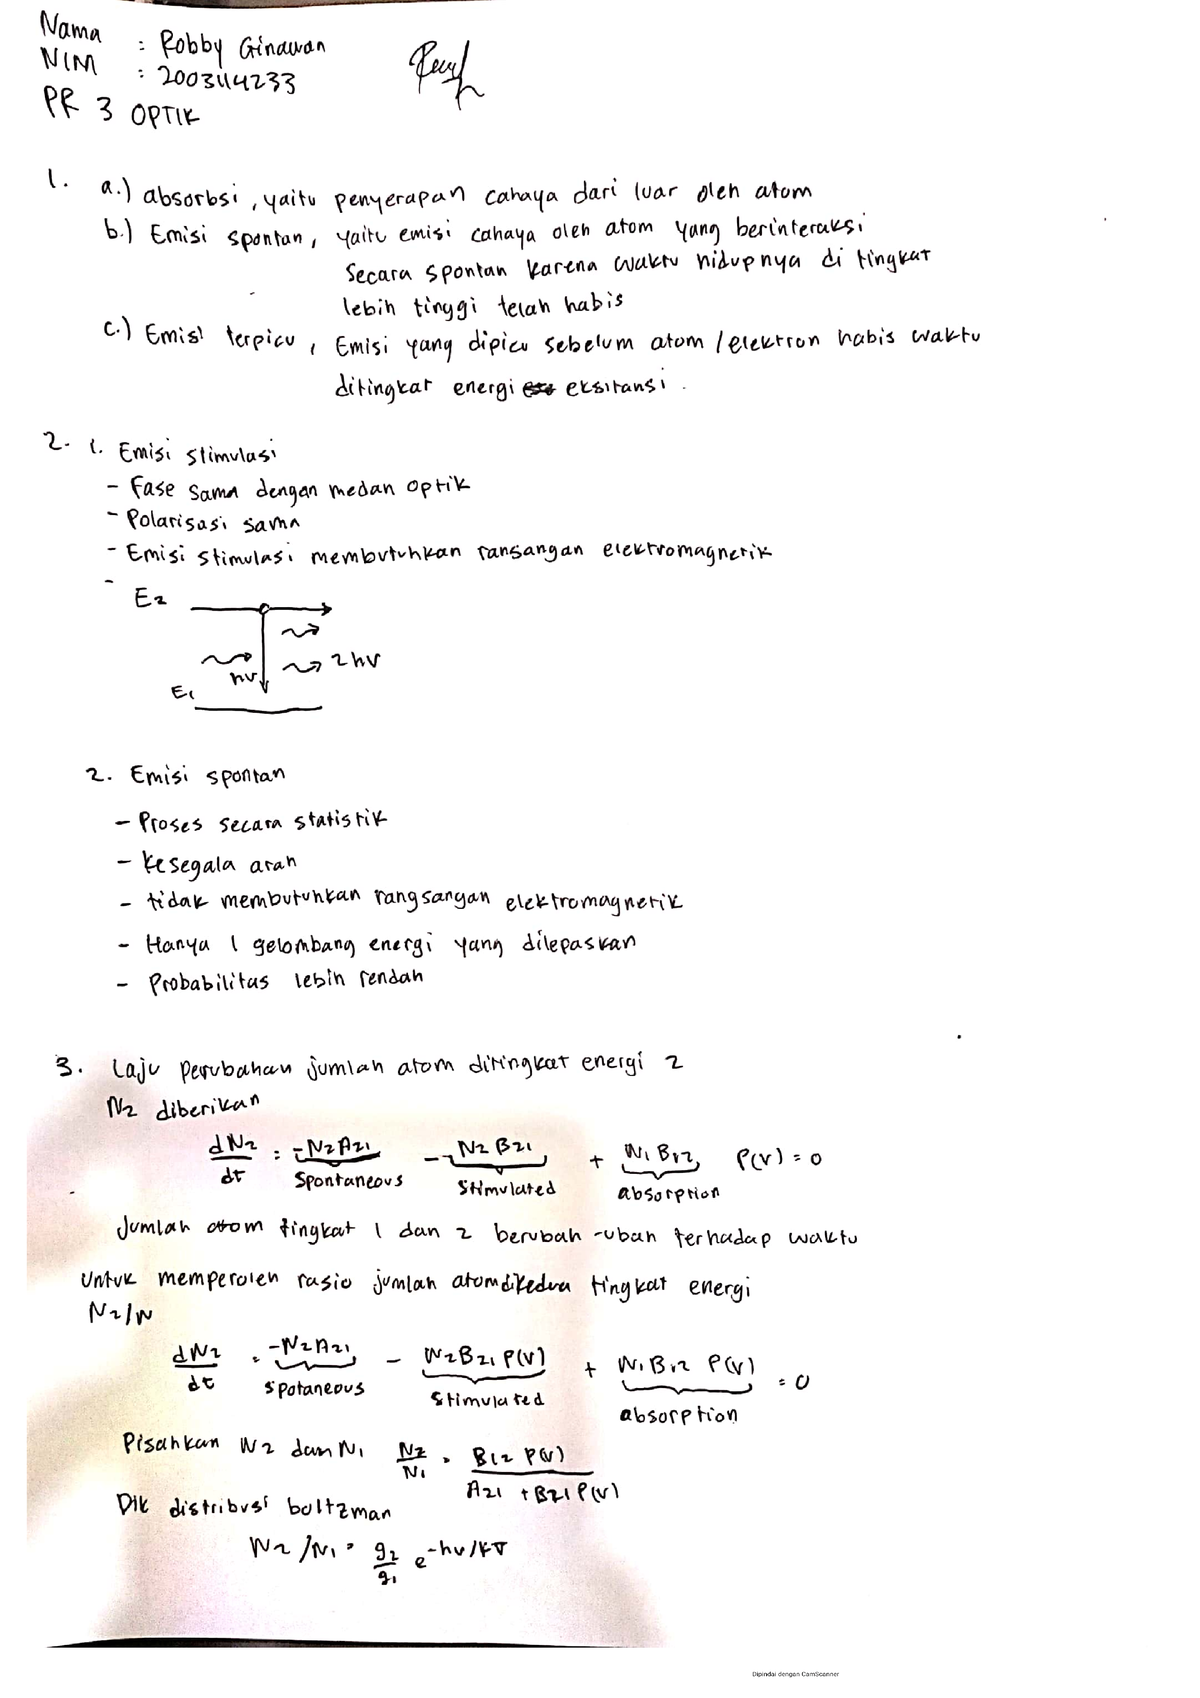 Nama : Robby Ginawan
NIM : 2003114233
PR 3 OPTIK
1. a.) absorbsi, yaitu penyerapan cahaya dari luar oleh atom
b.) Emisi spontan, yaitu emisi cahaya oleh atom yang berinteraksi
Secara spontan karena waktu hidupnya di tingkat
lebih tinggi telah habis
c.) Emisi terpicu, Emisi yang dipicu sebelum atom / elektron habis waktu
ditingkat energi eksitansi.
2. 1. Emisi stimulasi
- Fase sama dengan medan optik
- Polarisasi sama
- Emisi stimulasi membutuhkan ransangan elektromagnetik
-
E2
hv 2hv
E1
2. Emisi spontan
- Proses secara statistik
- kesegala arah
- tidak membutuhkan rangsangan elektromagnetik
- Hanya 1 gelombang energi yang dilepaskan
- Probabilitas lebih rendah
3. Laju perubahan jumlah atom ditingkat energi 2
N2 diberikan
dN2/dt = -N2A21 - N2B21 + N1B12 P(v) = 0
Spontaneous Stimulated absorption
Jumlah atom tingkat 1 dan 2 berubah-ubah terhadap waktu
Untuk memperoleh rasio jumlah atom dikedua tingkat energi
N2/N
dN2/dt = -N2A21 - N2B21 P(v) + N1B12 P(v) = 0
Spotaneous Stimulated absorption
Pisahkan N2 dan N1 N2/N1 = B12 P(v) / A21 + B21 P(v)
Dik distribusi boltzman
N2/N1 = g2/g1 e^-hv/kT
Dipindai dengan CamScanner